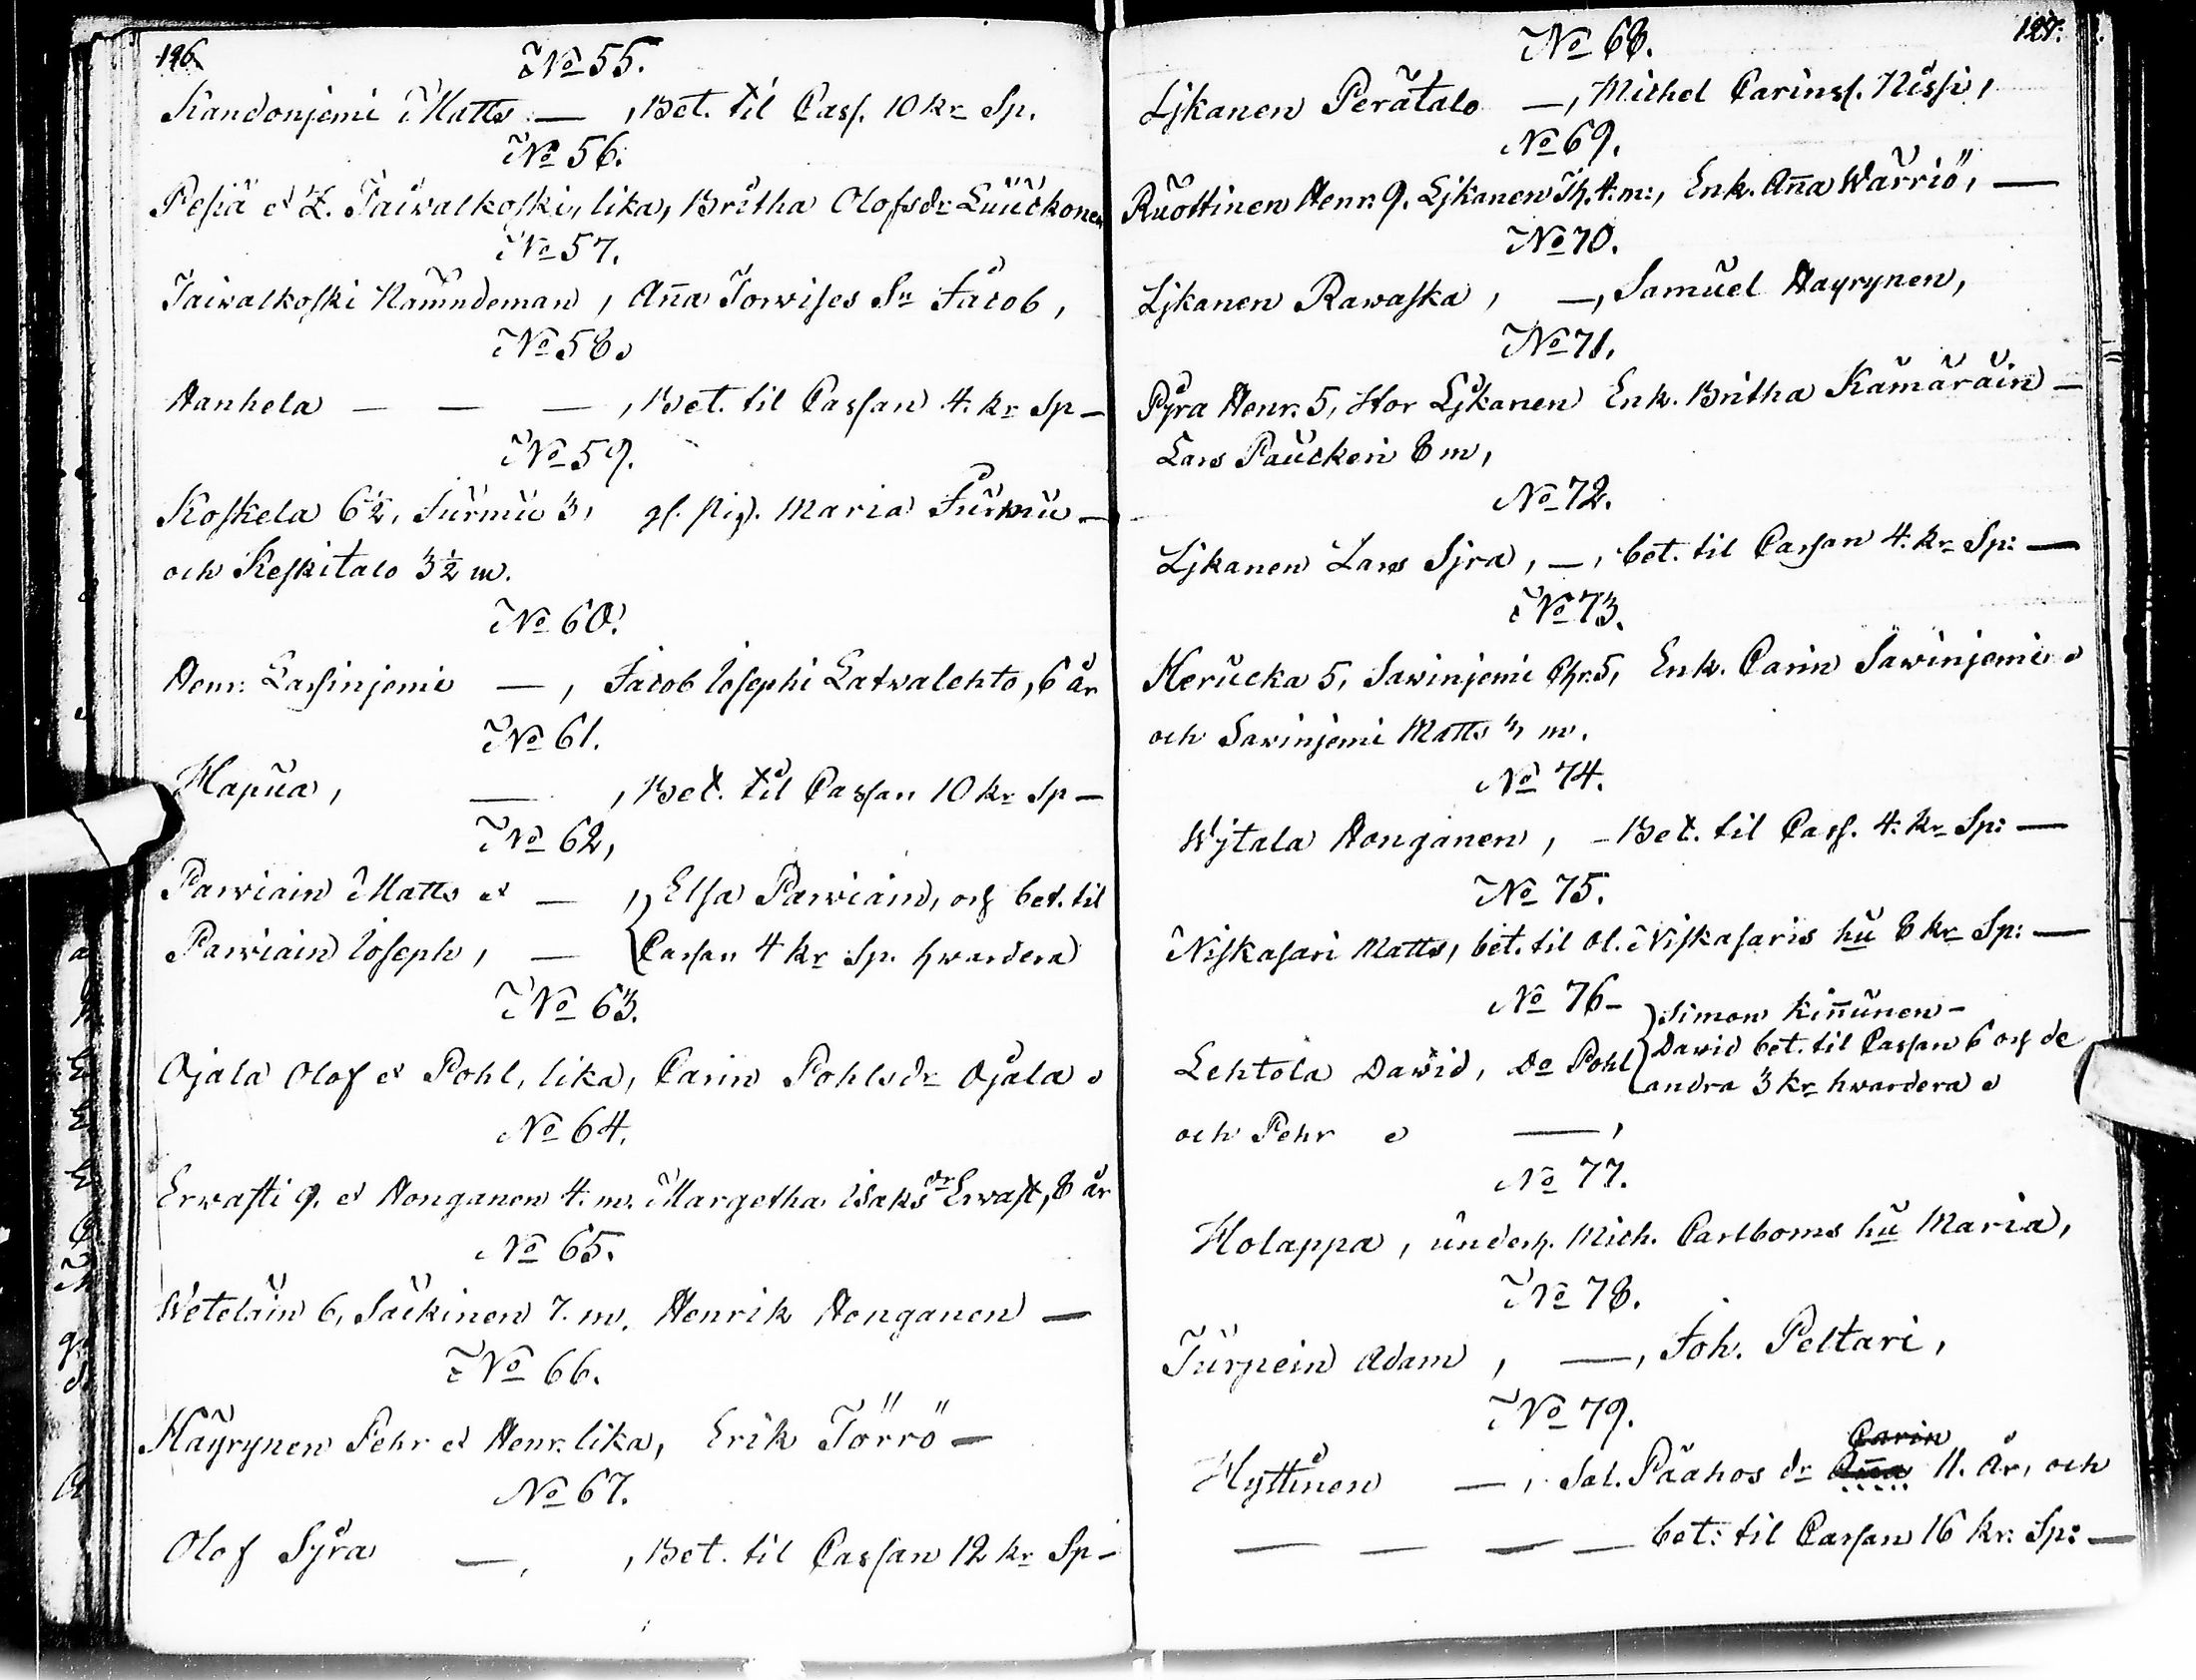 126.
No 55.
Kandonjemi Matts — , Bet. til Cass. 10 kr Sp.
No 56.
Pesiä et Z. Taiwalkoski, lika, Britha Olofsdr Luuckonen
No 57.
Taiwalkoski Nämndeman, Anna Torwises Sn Jacob,
No 58.
Hanhela — — — , Bet. til Cassan 4. kr Sp —
No 59.
Koskela 6½, Jurmu 3, gl. pig. Maria Jurmu —
och Keskitalo 3½ m.
No 60.
Henr. Lassinjemi — , Jacob Josephi Latwalehto, 6 år
No 61.
Hapua, — , Bet. til Cassan 10 kr Sp —
No 62,
Parviain Matts et — , Elsa Parviain, och bet. til
Parviain Joseph, — Cassan 4 kr Sp. hwardera
No 63.
Ojala Olof et Pohl, lika, Carin Pohlsdr Ojala
No 64.
Erwasti 9. et Honganen 4. m. Margetha Isaksdr Erwast, 8 år
No 65.
Weteläin 6, Säckinen 7. m. Henrik Honganen —
No 66.
Häyrynen Pehr et Henr. lika, Erik Törrö —
No 67.
Olof Syra — , Bet. til Cassan 12 kr Sp —
127.
No 68.
Ljkanen Perätalo —, Michel Carinss. Nissi,
No 69.
Ruottinen Henr. 9. Ljkanen Th. 4. m:, Enk. Anna Wärriö, —
No 70.
Ljkanen Rawaska, —, Samuel Hayrynen,
No 71.
Pyra Henr. 5, Stor Ljkanen Enk. Britha Kämäräin —
Lars Pauckein 8 m,
No 72.
Ljkanen Lars Sjra, —, bet. til Cassan 4. kr Sp: —
No 73.
Herucka 5, Sawinjemi Chr. 5, Enk. Carin Sawinjemi
och Sawinjemi Matts 3 m.
No 74.
Wjtala Honganen, — Bet. til Cass. 4. kr Sp: —
No 75.
Niskasari Matts, bet. til Ol. Niskasaris hu 8 kr Sp: —
No 76 —
Simon Kinnunen —
Lehtola Dawid, Do Pohl Dawid bet. til Cassan 6 och de
andra 3 kr hwardera
och Pehr — ,
No 77.
Holappa, underh. Mich. Carlboms hu Maria,
No 78.
Turpein Adam, —, Joh. Peltari,
No 79.
Carin
Hyttinen — , Sal. Päähos dr Anna 11. år, och
— — — — bet: til Cassan 16 kr: Sp: —